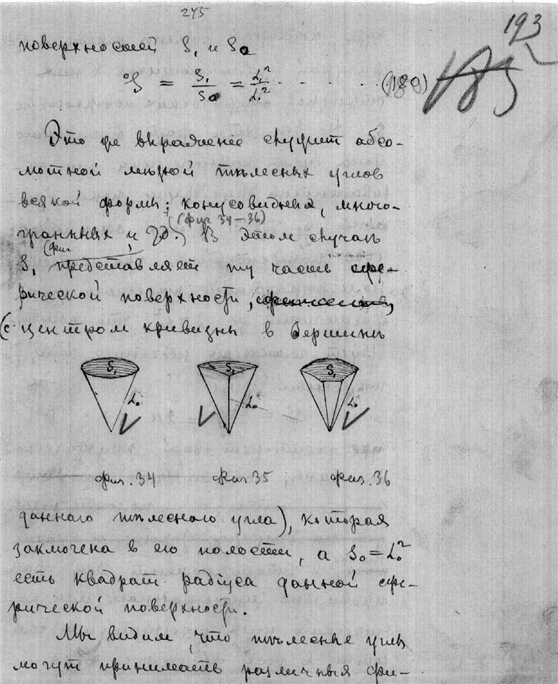 245
193
поверхностей S₁ и S₀
S = S₁/S₀ = L₁²/L₀² · · · · · · (180)
Это же выраженіе служит абсо-
лютной мѣрой тѣлесных углов
всякой формы: конусовидных, много-
(фиг 34–36)
гранных и др. В этом случаѣ
(фиг
S₁ представляет ту часть сфе-
рической поверхности,
(с центром кривизны в вершинѣ
S₁ L₀² S₁ L₀² S₁ L₀²
фиг. 34 Фиг 35 Фиг. 36
даннаго тѣлеснаго угла), которая
заключена в его полости, а S₀ = L₀²
есть квадрат радіуса данной сфе-
рической поверхности.
Мы видим, что тѣлесные углы
могут принимать различныя фи-